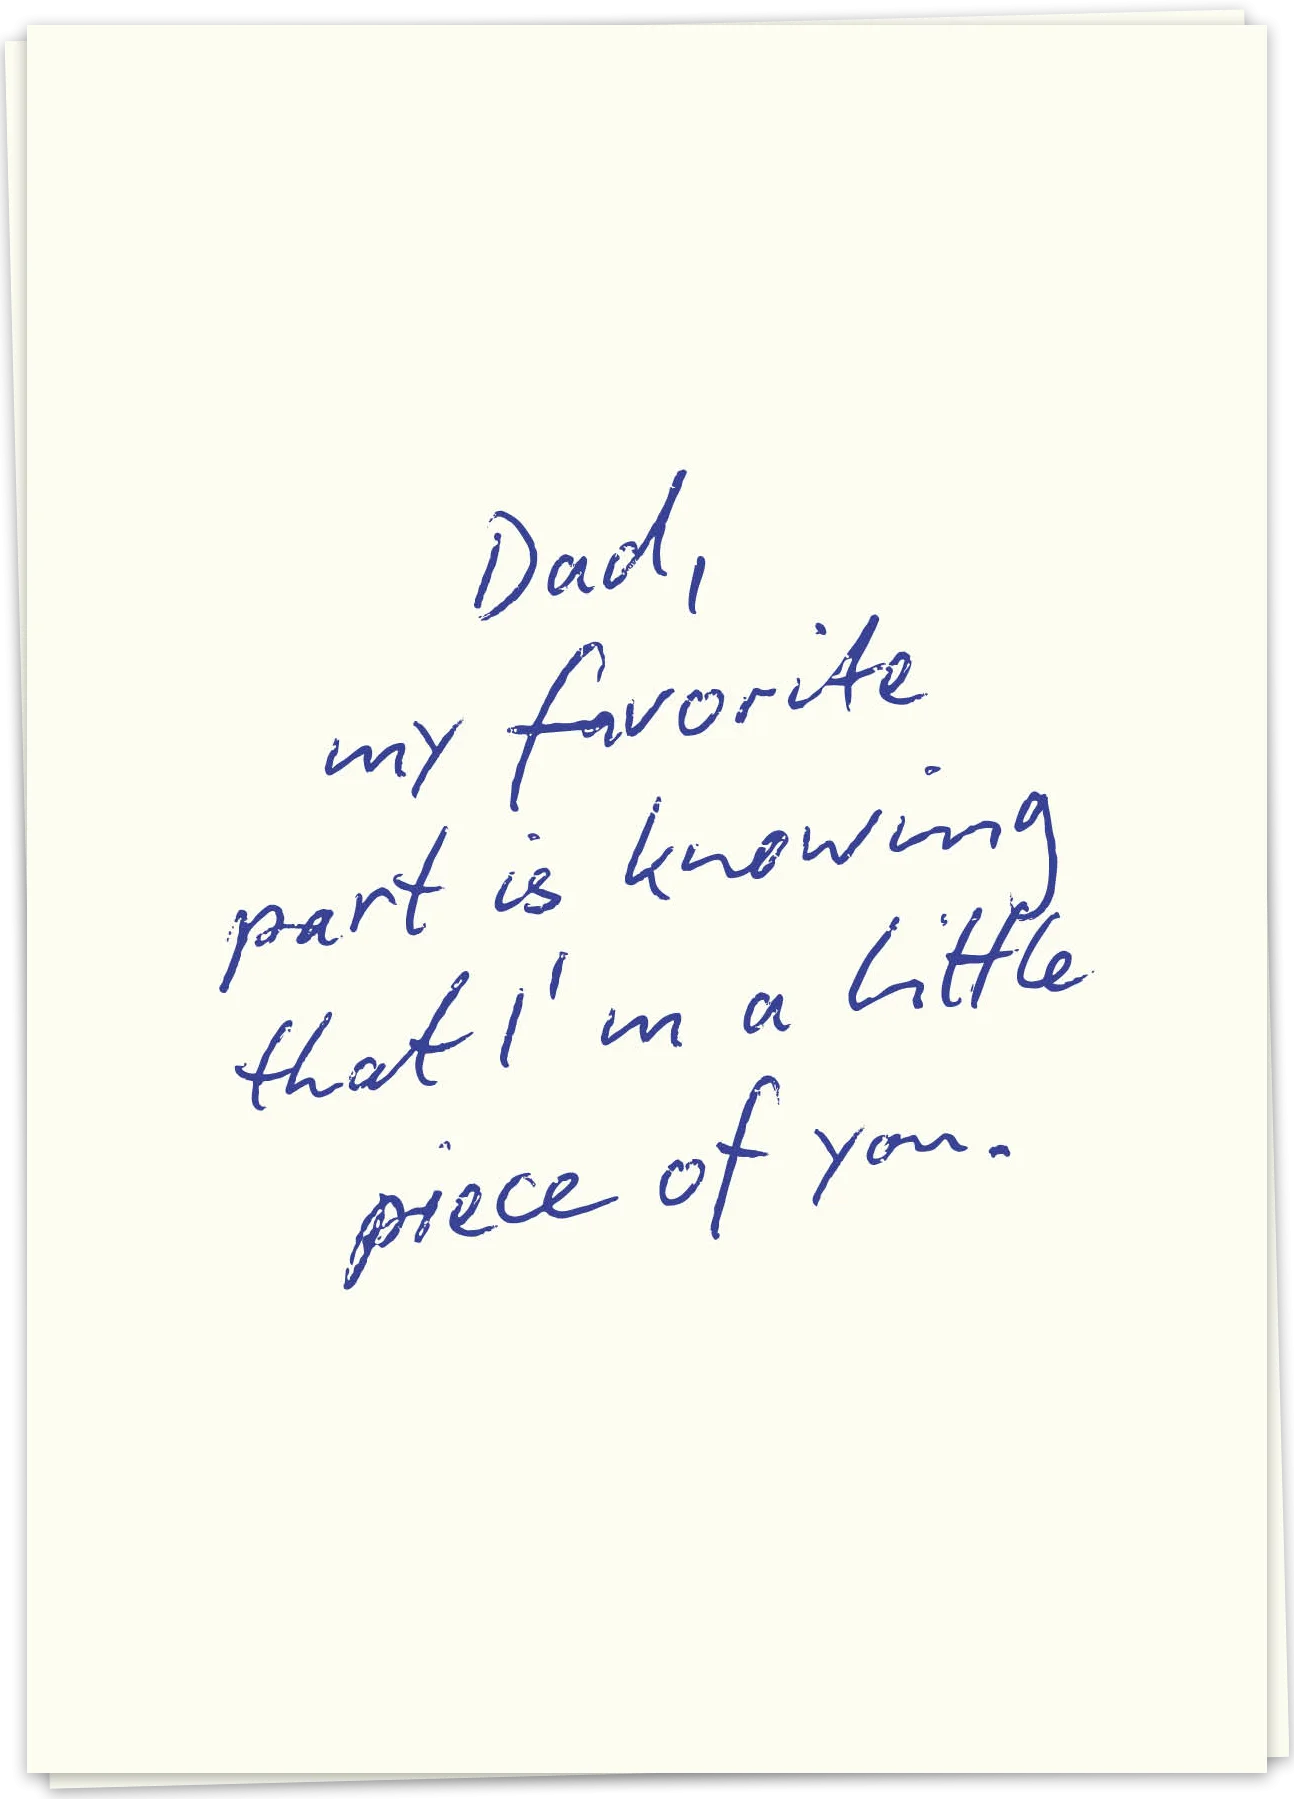 Dad,
my favorite
part is knowing
that I'm a little
piece of you.